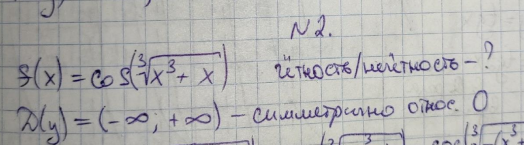 N2.
f(x) = cos(∛(x³ + x)) чётность/нечётность - ?
D(y) = (-∞; +∞) - симметрично относ. 0